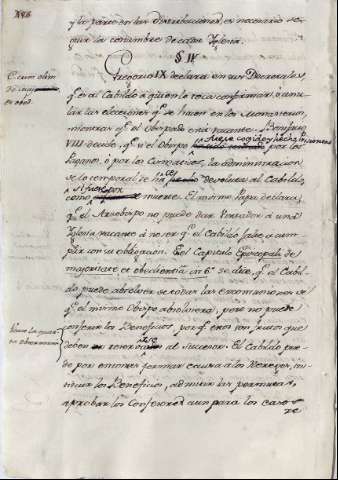 y la parte en las distribuciones, es necesario se-
guir la costumbre de cada Iglesia.
§ II
Gregorio IX declara en sus Decretales,
C. cum olim
q.e es al Cabildo à quien le toca confirmar, ò anu-
lar las elecciones q.e se hacen en los Monasterios,
mientras q.e el Obispado està vacante. Bonifacio
VIII decide, q.e si el Obispo fuese cogido y hecho por los
Paganos, ò por los Cismaticos, la administracion
de lo temporal se devolverà al Cabildo,
como si fuese por muerte. El mismo Papa declara
q.e el Arzobispo no puede dar Visitador à una
Iglesia vacante à no ser q.e el Cabildo falte a cum-
plir con su obligacion. En el Capitulo Episcopali de
majoritate et obedientia in 6.º se dice, q.e el Cabil-
do puede absolver de todas las excomuniones de
q.e el mismo Obispo absolviera, pero no puede
conferir los Beneficios por q.e esos son frutos que
deben reservarse al Sucesor. El Cabildo pue-
de por entonces formar causa a los Hereges, ins-
tituir los Beneficios, admitir las permutas,
aprobar los Confesores aun para los casos
re